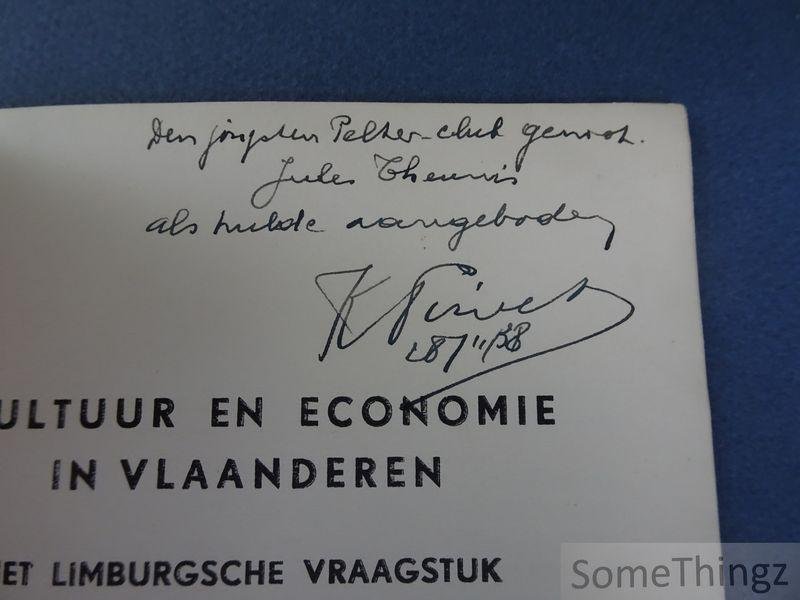 Den jongsten Pelter-club genoot.
Jules Theunis
als hulde aangeboden
K Pinxten
28/11/38
ULTUUR EN ECONOMIE
IN VLAANDEREN
ET LIMBURGSCHE VRAAGSTUK
SomeThingz